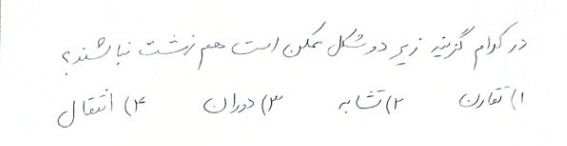 در کدام گزینه زیر دو شکل ممکن است هم نهشت نباشند؟
۱) تقارن ۲) تشابه ۳) دوران ۴) انتقال